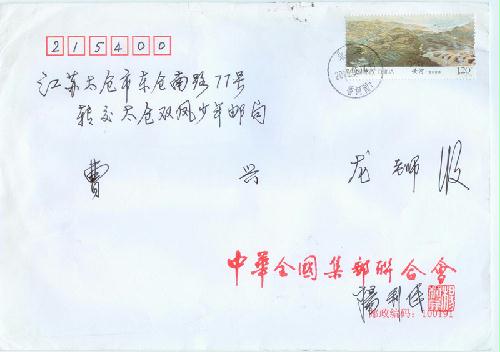 215400
120
黄河
江苏太仓市东仓南路77号
转交太仓双凤少年邮局
曹 兴 龙 老师 收
中華全國集郵聯合會
楊利伟
邮政编码：100191